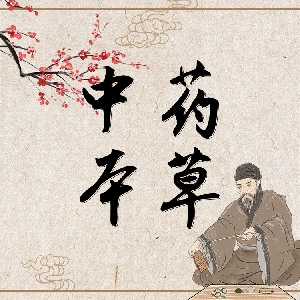 中药
本草